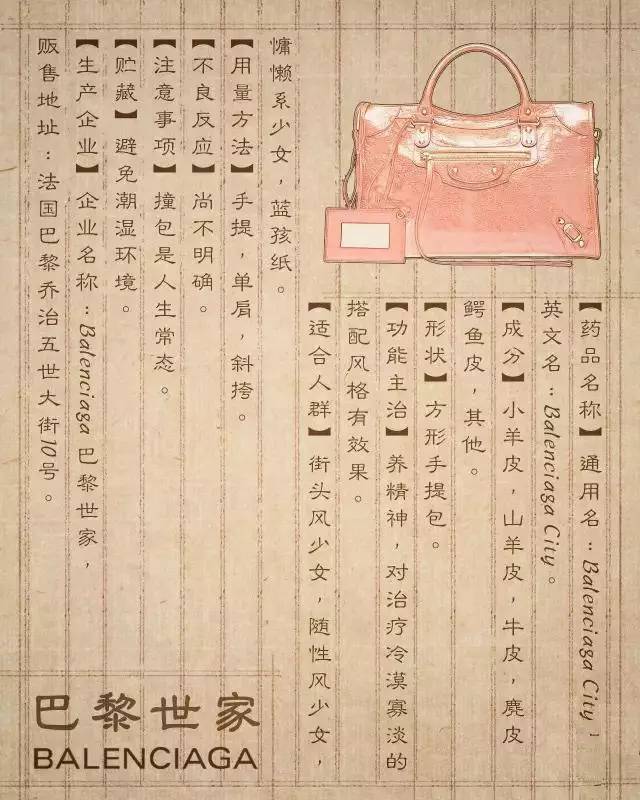 【药品名称】通用名：Balenciaga City，
英文名：Balenciaga City。
【成分】小羊皮，山羊皮，牛皮，麂皮
鳄鱼皮，其他。
【形状】方形手提包。
【功能主治】养精神，对治疗冷漠寡淡的
搭配风格有效果。
【适合人群】街头风少女，随性风少女，
慵懒系少女，蓝孩纸。
【用量方法】手提，单肩，斜挎。
【不良反应】尚不明确。
【注意事项】撞包是人生常态。
【贮藏】避免潮湿环境。
【生产企业】企业名称：Balenciaga 巴黎世家，
贩售地址：法国巴黎乔治五世大街10号。
巴黎世家
BALENCIAGA